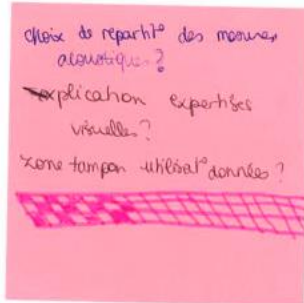 choix de repartit° des mesures
acoustiques?
explication expertises
visuelles?
zone tampon utilisat° données?